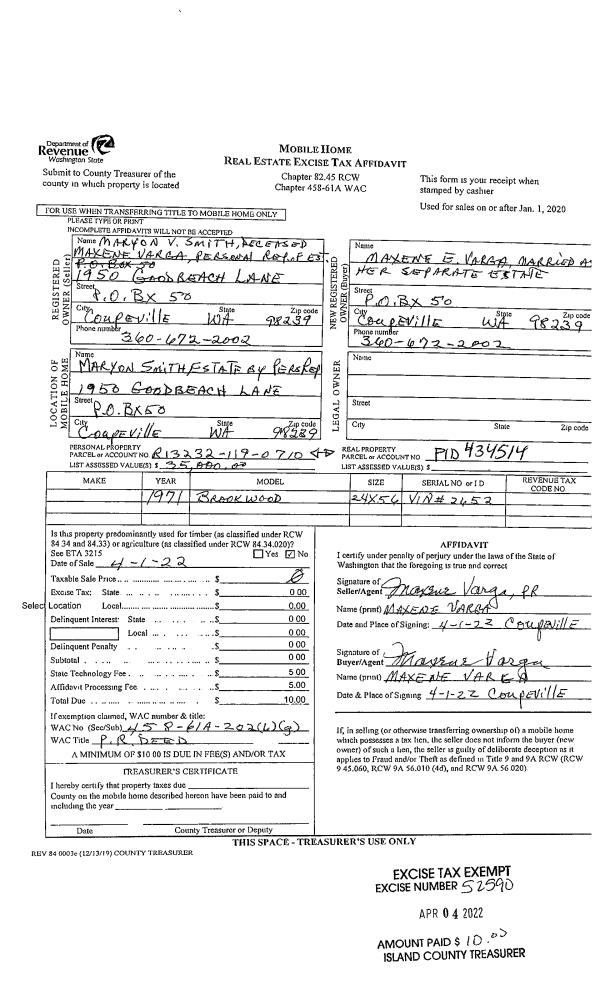 Department of
Revenue
Washington State
Submit to County Treasurer of the
county in which property is located
MOBILE HOME
REAL ESTATE EXCISE TAX AFFIDAVIT
Chapter 82.45 RCW
Chapter 458-61A WAC
This form is your receipt when
stamped by cashier
Used for sales on or after Jan. 1, 2020
FOR USE WHEN TRANSFERRING TITLE TO MOBILE HOME ONLY
PLEASE TYPE OR PRINT
INCOMPLETE AFFIDAVITS WILL NOT BE ACCEPTED
REGISTERED OWNER (Seller)
Name MARYON V. SMITH, DECEASED
MAXENE VARGA, PERSONAL REP OF ES.
P.O. Box 50
1950 GOODBEACH LANE
Street
P.O. Bx 50
City State Zip code
COUPEVILLE WA 98239
Phone number
360-672-2002
NEW REGISTERED OWNER (Buyer)
Name
MAXENE E. VARGA, MARRIED AS
HER SEPARATE ESTATE
Street
P.O. Bx 50
City State Zip code
COUPEVILLE WA 98239
Phone number
360-672-2002
LOCATION OF MOBILE HOME
Name
MARYON SMITH, ESTATE BY PERS REP
1950 GOODBEACH LANE
Street
P.O. Bx 50
City State Zip code
COUPEVILLE WA 98239
LEGAL OWNER
Name
Street
City State Zip code
PERSONAL PROPERTY
PARCEL or ACCOUNT NO. R13232-119-0710
LIST ASSESSED VALUE(S) $ 35,000.00
REAL PROPERTY
PARCEL or ACCOUNT NO. PID 434514
LIST ASSESSED VALUE(S) $
MAKE YEAR MODEL SIZE SERIAL NO or ID REVENUE TAX CODE NO
1971 BROOKWOOD 24X56 VIN# 2652
Is this property predominantly used for timber (as classified under RCW
84.34 and 84.33) or agriculture (as classified under RCW 84.34.020)?
See ETA 3215 Yes No
Date of Sale 4-1-22
Taxable Sale Price $ 0
Excise Tax: State $ 0.00
Select Location Local $ 0.00
Delinquent Interest: State $ 0 00
Local $ 0 00
Delinquent Penalty $ 0 00
Subtotal $ 0 00
State Technology Fee $ 5.00
Affidavit Processing Fee $ 5.00
Total Due $ 10.00
If exemption claimed, WAC number & title:
WAC No (Sec/Sub) 458-61A-202(6)(g)
WAC Title P.R. DEED
A MINIMUM OF $10 00 IS DUE IN FEE(S) AND/OR TAX
TREASURER'S CERTIFICATE
I hereby certify that property taxes due
County on the mobile home described hereon have been paid to and
including the year
Date County Treasurer or Deputy
AFFIDAVIT
I certify under penalty of perjury under the laws of the State of
Washington that the foregoing is true and correct
Signature of
Seller/Agent Maxene Varga, PR
Name (print) MAXENE VARGA
Date and Place of Signing: 4-1-22 COUPEVILLE
Signature of
Buyer/Agent Maxene Varga
Name (print) MAXENE VARGA
Date & Place of Signing 4-1-22 COUPEVILLE
If, in selling (or otherwise transferring ownership of) a mobile home
which possesses a tax lien, the seller does not inform the buyer (new
owner) of such a lien, the seller is guilty of deliberate deception as it
applies to Fraud and/or Theft as defined in Title 9 and 9A RCW (RCW
9 45.060, RCW 9A 56.010 (4d), and RCW 9A 56 020)
THIS SPACE - TREASURER'S USE ONLY
REV 84 0003e (12/13/19) COUNTY TREASURER
EXCISE TAX EXEMPT
EXCISE NUMBER 52590
APR 04 2022
AMOUNT PAID $ 10.00
ISLAND COUNTY TREASURER